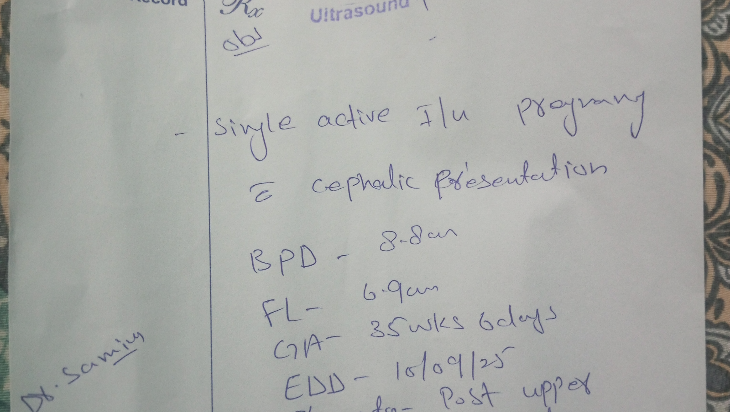 Record
Rx
Ultrasound
obs
- Single active I/u pregnancy
c̄ cephalic presentation
BPD - 8.8cm
FL- 6.9cm
GA- 35wks 6days
EDD - 10/09/25
Post upper
Dr. Samina